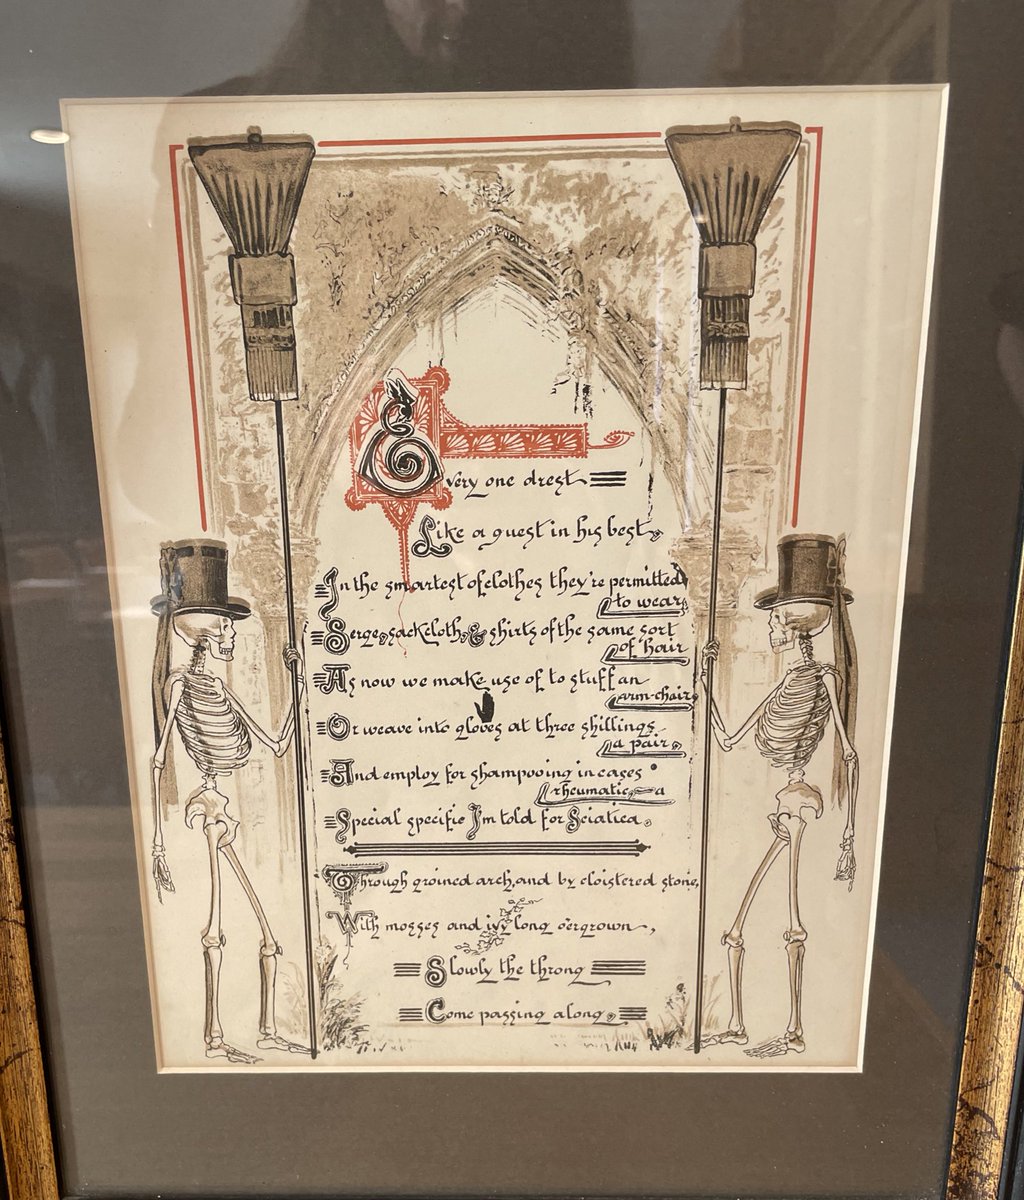 Every one drest
Like a guest in his best,
In the smartest of clothes they're permitted
to wear,
Serge, sackcloth, & shirts of the same sort
of hair
As now we make use of to stuff an
arm-chair,
Or weave into gloves at three shillings
a pair,
And employ for shampooing in cases
rheumatic—a
Special specific I'm told for Sciatica.
Through groined arch, and by cloistered stone,
With mosses and ivy long o'ergrown,
Slowly the throng
Come passing along,